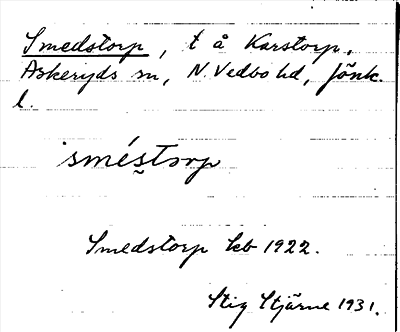 Smedstorp, t å Karstorp,
Askeryds sn, N. Vedbo hd, Jönk.
l.
sméstorp
Smedstorp kb 1922.
Stig Stjärne 1931.